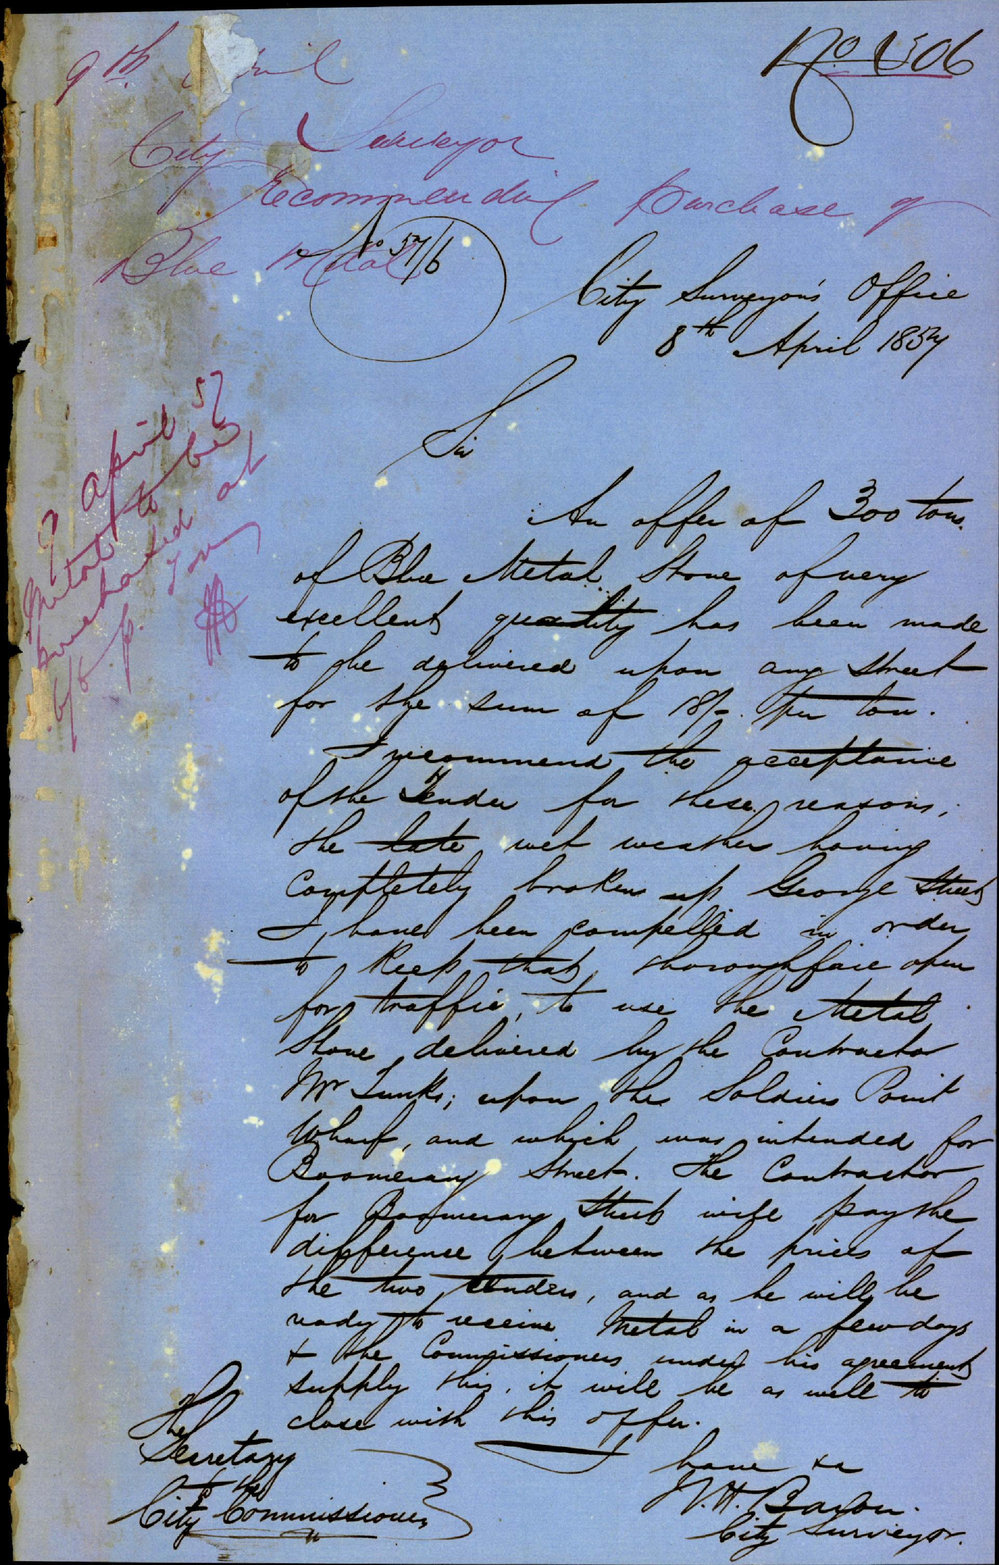 No 1306
9th April
City Surveyor
recommending purchase of
Blue Metal
No 57/6
City Surveyor's Office
8th April 1857
Sir
An offer of 300 tons
of Blue Metal Stone of very
excellent quality has been made
to be delivered upon any Street
for the sum of 18/- per ton.
I recommend the acceptance
of the Tender for these reasons,
the late wet weather having
completely broken up George Street
I have been compelled in order
to keep that thoroughfare open
for traffic, to use the Metal
Stone delivered by the Contractor
Mr Tunks; upon the Soldiers Point
Wharf, and which was intended for
Boomerang Street. The Contractor
for Boomerang Street will pay the
difference between the prices of
the two tenders, and as he will be
ready to receive Metal in a few days
& the Commissioners under his agreement
supply this, it will be as well to
close with this offer.
I have &c
City Surveyor.
The
Secretary
to the
City Commissioners
9 April 57
Metal to be
purchased at